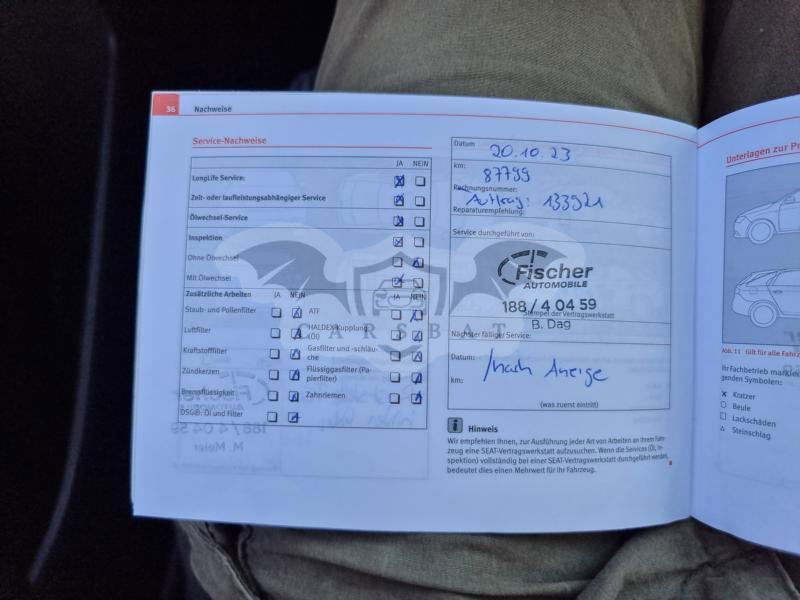 36 Nachweise
Service-Nachweise
JA NEIN
LongLife Service:
Zeit- oder laufleistungsabhängiger Service
Ölwechsel-Service
Inspektion
Ohne Ölwechsel
Mit Ölwechsel
Zusätzliche Arbeiten JA NEIN JA NEIN
Staub- und Pollenfilter ATF
Luftfilter HALDEX-Kupplung (Öl)
Kraftstofffilter Gasfilter und -schläu-
che
Zündkerzen Flüssiggasfilter (Pa-
pierfilter)
Bremsflüssigkeit Zahnriemen
DSG®: Öl und Filter
Datum 20.10.23
km: 87799
Rechnungsnummer:
Auftrag: 133921
Reparaturempfehlung:
Service durchgeführt von:
Fischer
AUTOMOBILE
188 / 4 04 59
Stempel der Vertragswerkstatt
B. Dag
Nächster fälliger Service:
Datum:
km: Nach Anzeige
(was zuerst eintritt)
Hinweis
Wir empfehlen Ihnen, zur Ausführung jeder Art von Arbeiten an Ihrem Fahr-
zeug eine SEAT-Vertragswerkstatt aufzusuchen. Wenn die Services (Öl, In-
spektion) vollständig bei einer SEAT-Vertragswerkstatt durchgeführt werden,
bedeutet dies einen Mehrwert für Ihr Fahrzeug.
CARSBAT
Fischer
AUTOMOBILE
188 / 4 04 59
M. Meier
Unterlagen zur Pr
Abb. 11 Gilt für alle Fahrz
Ihr Fachbetrieb markie
genden Symbolen:
x Kratzer
○ Beule
□ Lackschäden
△ Steinschlag